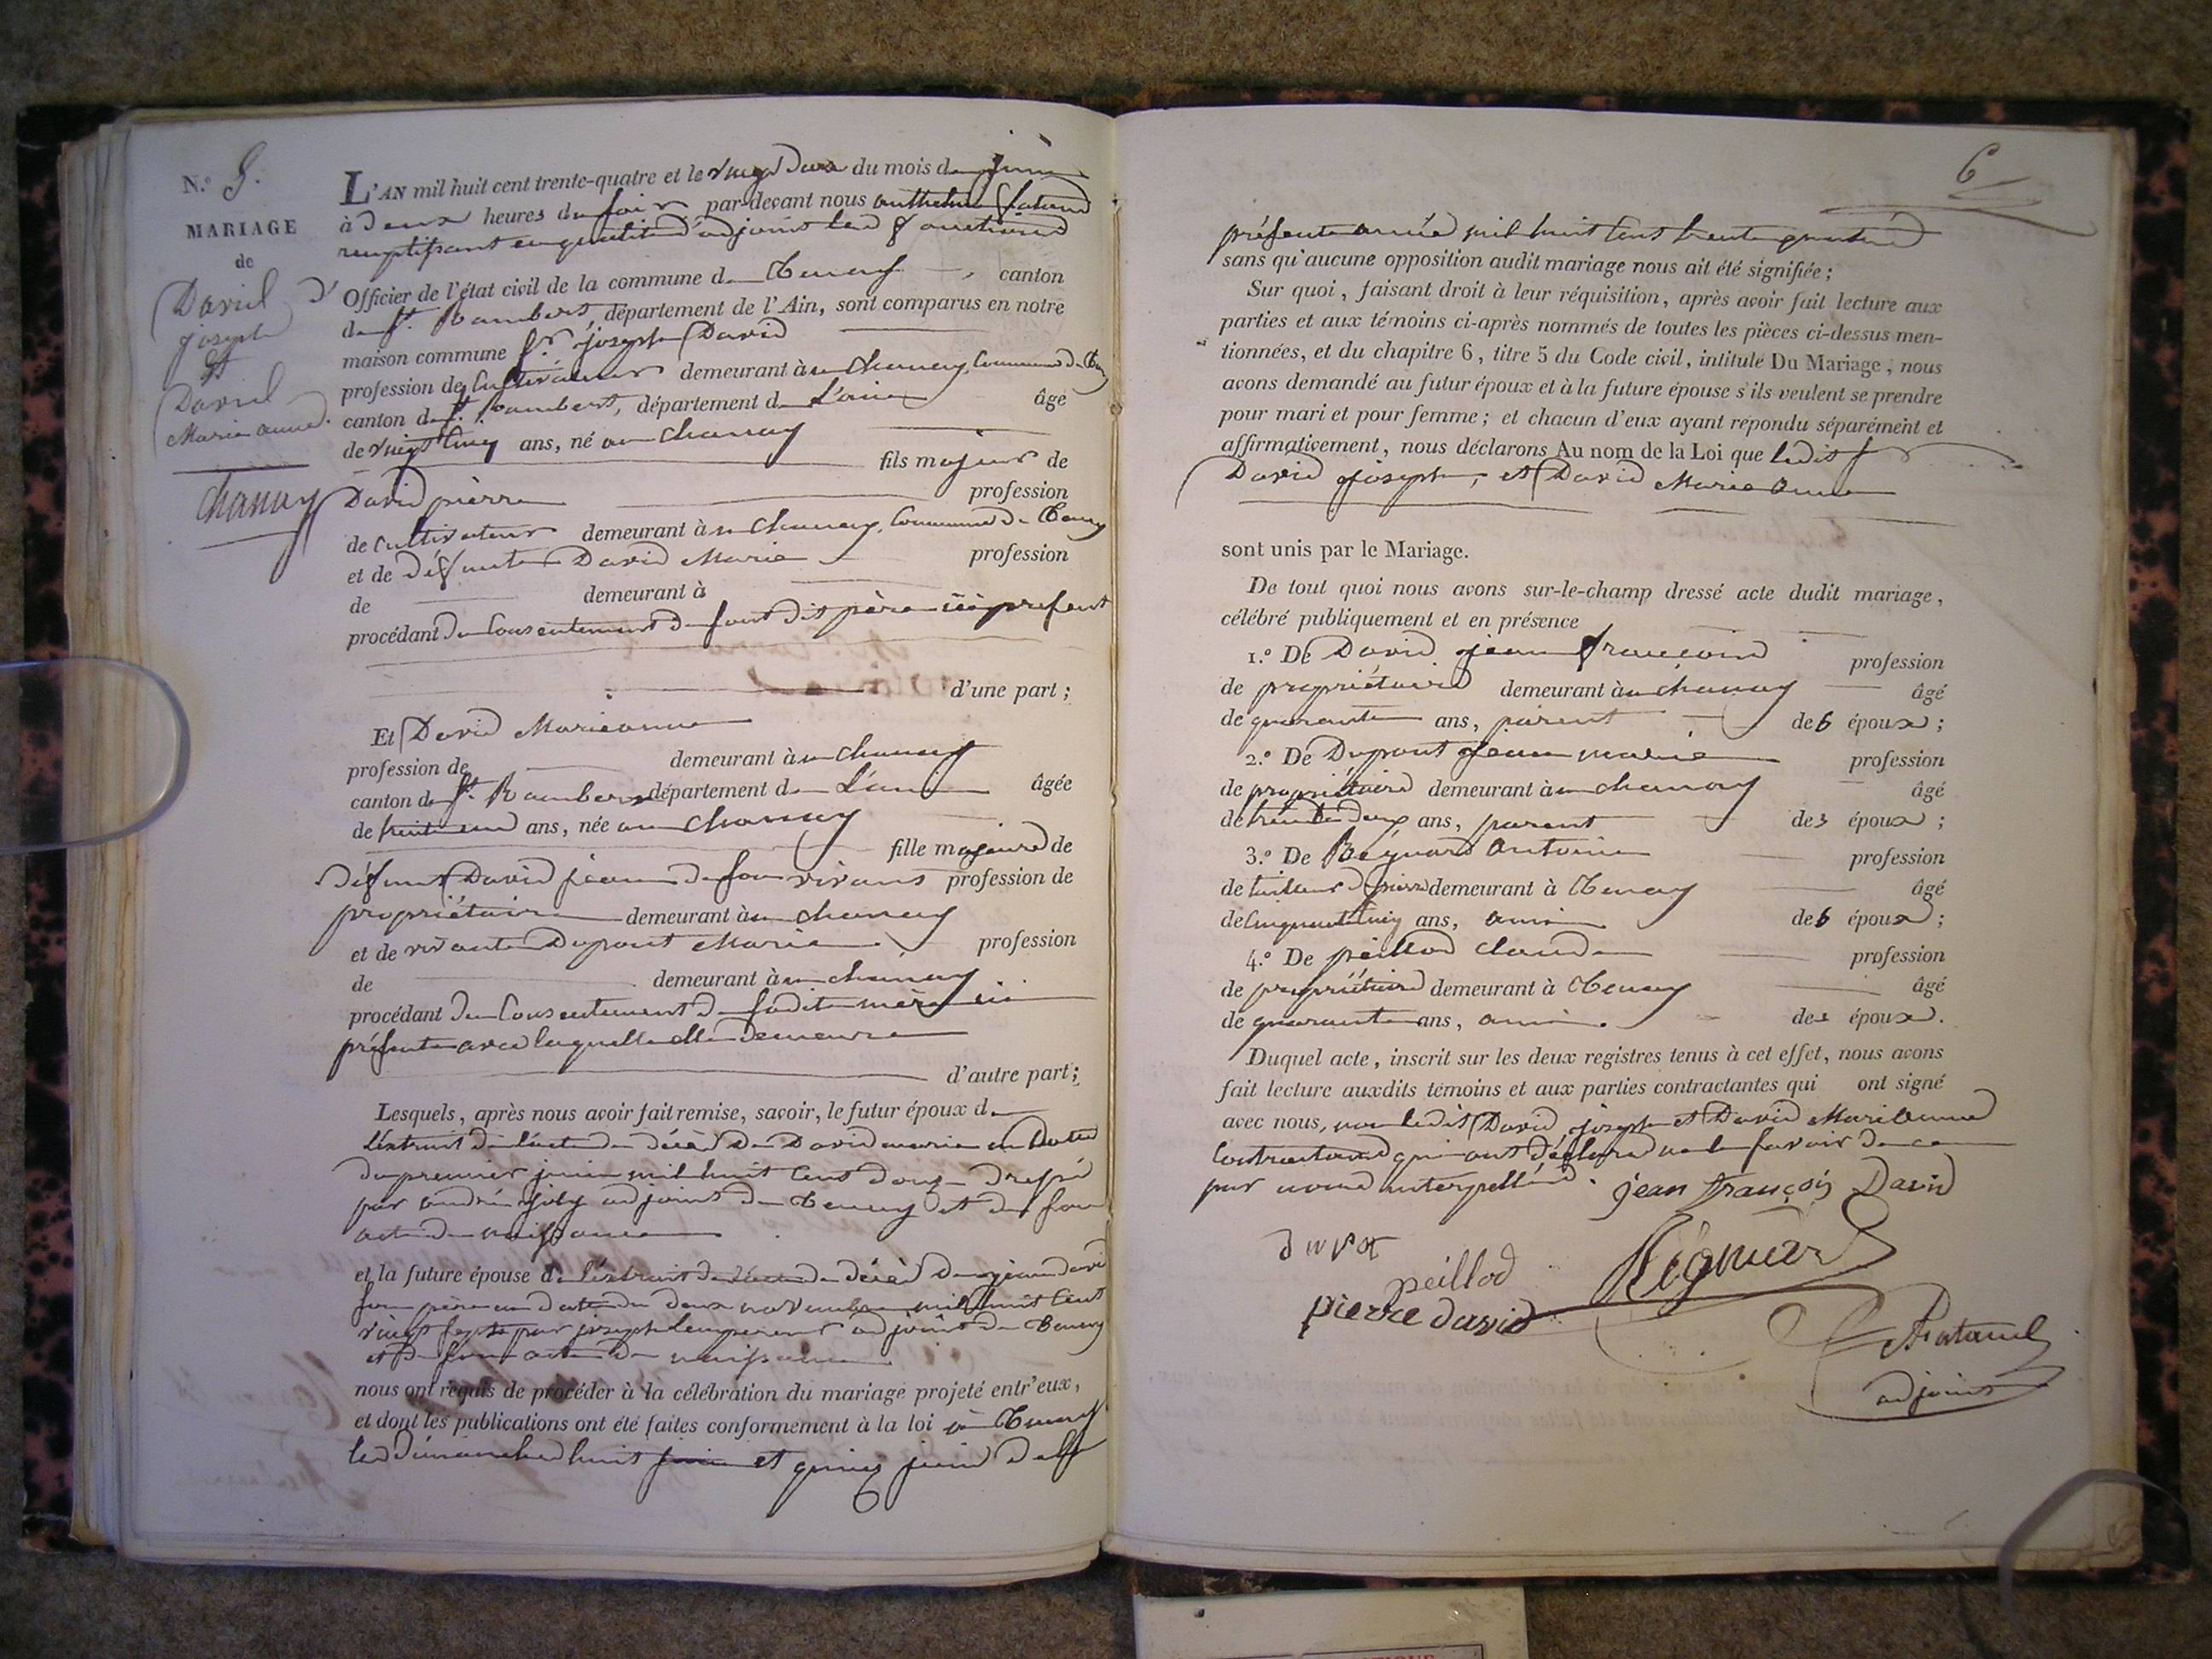 N.° 9.
MARIAGE
de
David
joseph
Et
David
Marie anne.
chanay
L'AN mil huit cent trente-quatre et le vingt deux du mois de juin
à deux heures du soir par-devant nous anthelme
remplissant en qualité d'adjoint les fonctions
d'Officier de l'état civil de la commune de Tenay, canton
de St. Rambert, département de l'Ain, sont comparus en notre
maison commune Sr. joseph David
profession de Cultivateur demeurant à en chanay, Commune de
canton de St. Rambert, département de L'ain âgé
de vingt Cinq ans, né au chanay
fils majeur de
David pièrre profession
de Cultivateur demeurant à en chanay, Commune de Tenay
et de défunte David Marie profession
de demeurant à
procédant du Consentement de son dit père ici présent
d'une part;
Et David Marieanne
profession de demeurant à en chanay
canton de St. Rambert département de L'ain âgée
de trente un ans, née au chanay
fille majeure de
défunt David jean de son vivant profession de
propriétaire demeurant à en chanay
et de vivante Dupont Marie profession
de demeurant à en chanay
procédant du Consentement de sadite mère ici
présente avec laquelle elle demeure
d'autre part;
Lesquels, après nous avoir fait remise, savoir, le futur époux d
L'extrait de l'acte de décès de David marie en datte
du premier juin mil huit Cent douze dressé
par andré joly adjoint de Tenay et de son
acte de naissance
et la future épouse de L'extrait de l'acte de décès de jean david
son père en date du deux novembre mil huit Cent
vingt sept par joseph Lempereur adjoint de Tenay
et de son acte de naissance
nous ont requis de procéder à la célébration du mariage projeté entr'eux,
et dont les publications ont été faites conformement à la loi à Tenay
les dimanches huit juin et quinze juin de la
6
présente année mil huit Cent trente quatre
sans qu'aucune opposition audit mariage nous ait été signifiée;
Sur quoi, faisant droit à leur réquisition, après avoir fait lecture aux
parties et aux témoins ci-après nommés de toutes les pièces ci-dessus men-
tionnées, et du chapitre 6, titre 5 du Code civil, intitulé Du Mariage, nous
avons demandé au futur époux et à la future épouse s'ils veulent se prendre
pour mari et pour femme; et chacun d'eux ayant répondu séparément et
affirmativement, nous déclarons Au nom de la Loi que ledit Sr
David joseph, et David Marie Anne
sont unis par le Mariage.
De tout quoi nous avons sur-le-champ dressé acte dudit mariage,
célébré publiquement et en présence
1.° De David jean françois profession
de propriétaire demeurant à en chanay âgé
de quarante ans, parent des époux;
2.° De Dupont jean marie profession
de propriétaire demeurant à en chanay âgé
de trente deux ans, parent des époux;
3.° De Régnard Antoine profession
de tailleur de pierre demeurant à Tenay âgé
de Cinquante Cinq ans, ami des époux;
4.° De peillod claude profession
de propriétaire demeurant à Tenay âgé
de quarante ans, ami. des époux.
Duquel acte, inscrit sur les deux registres tenus à cet effet, nous avons
fait lecture auxdits témoins et aux parties contractantes qui ont signé
avec nous, non ledit David joseph et David Marie Anne
Contractans qui ont déclaré ne le savoir de ce
par nous interpellés. jean françois David
peillod Régnard
pierre david
adjoint